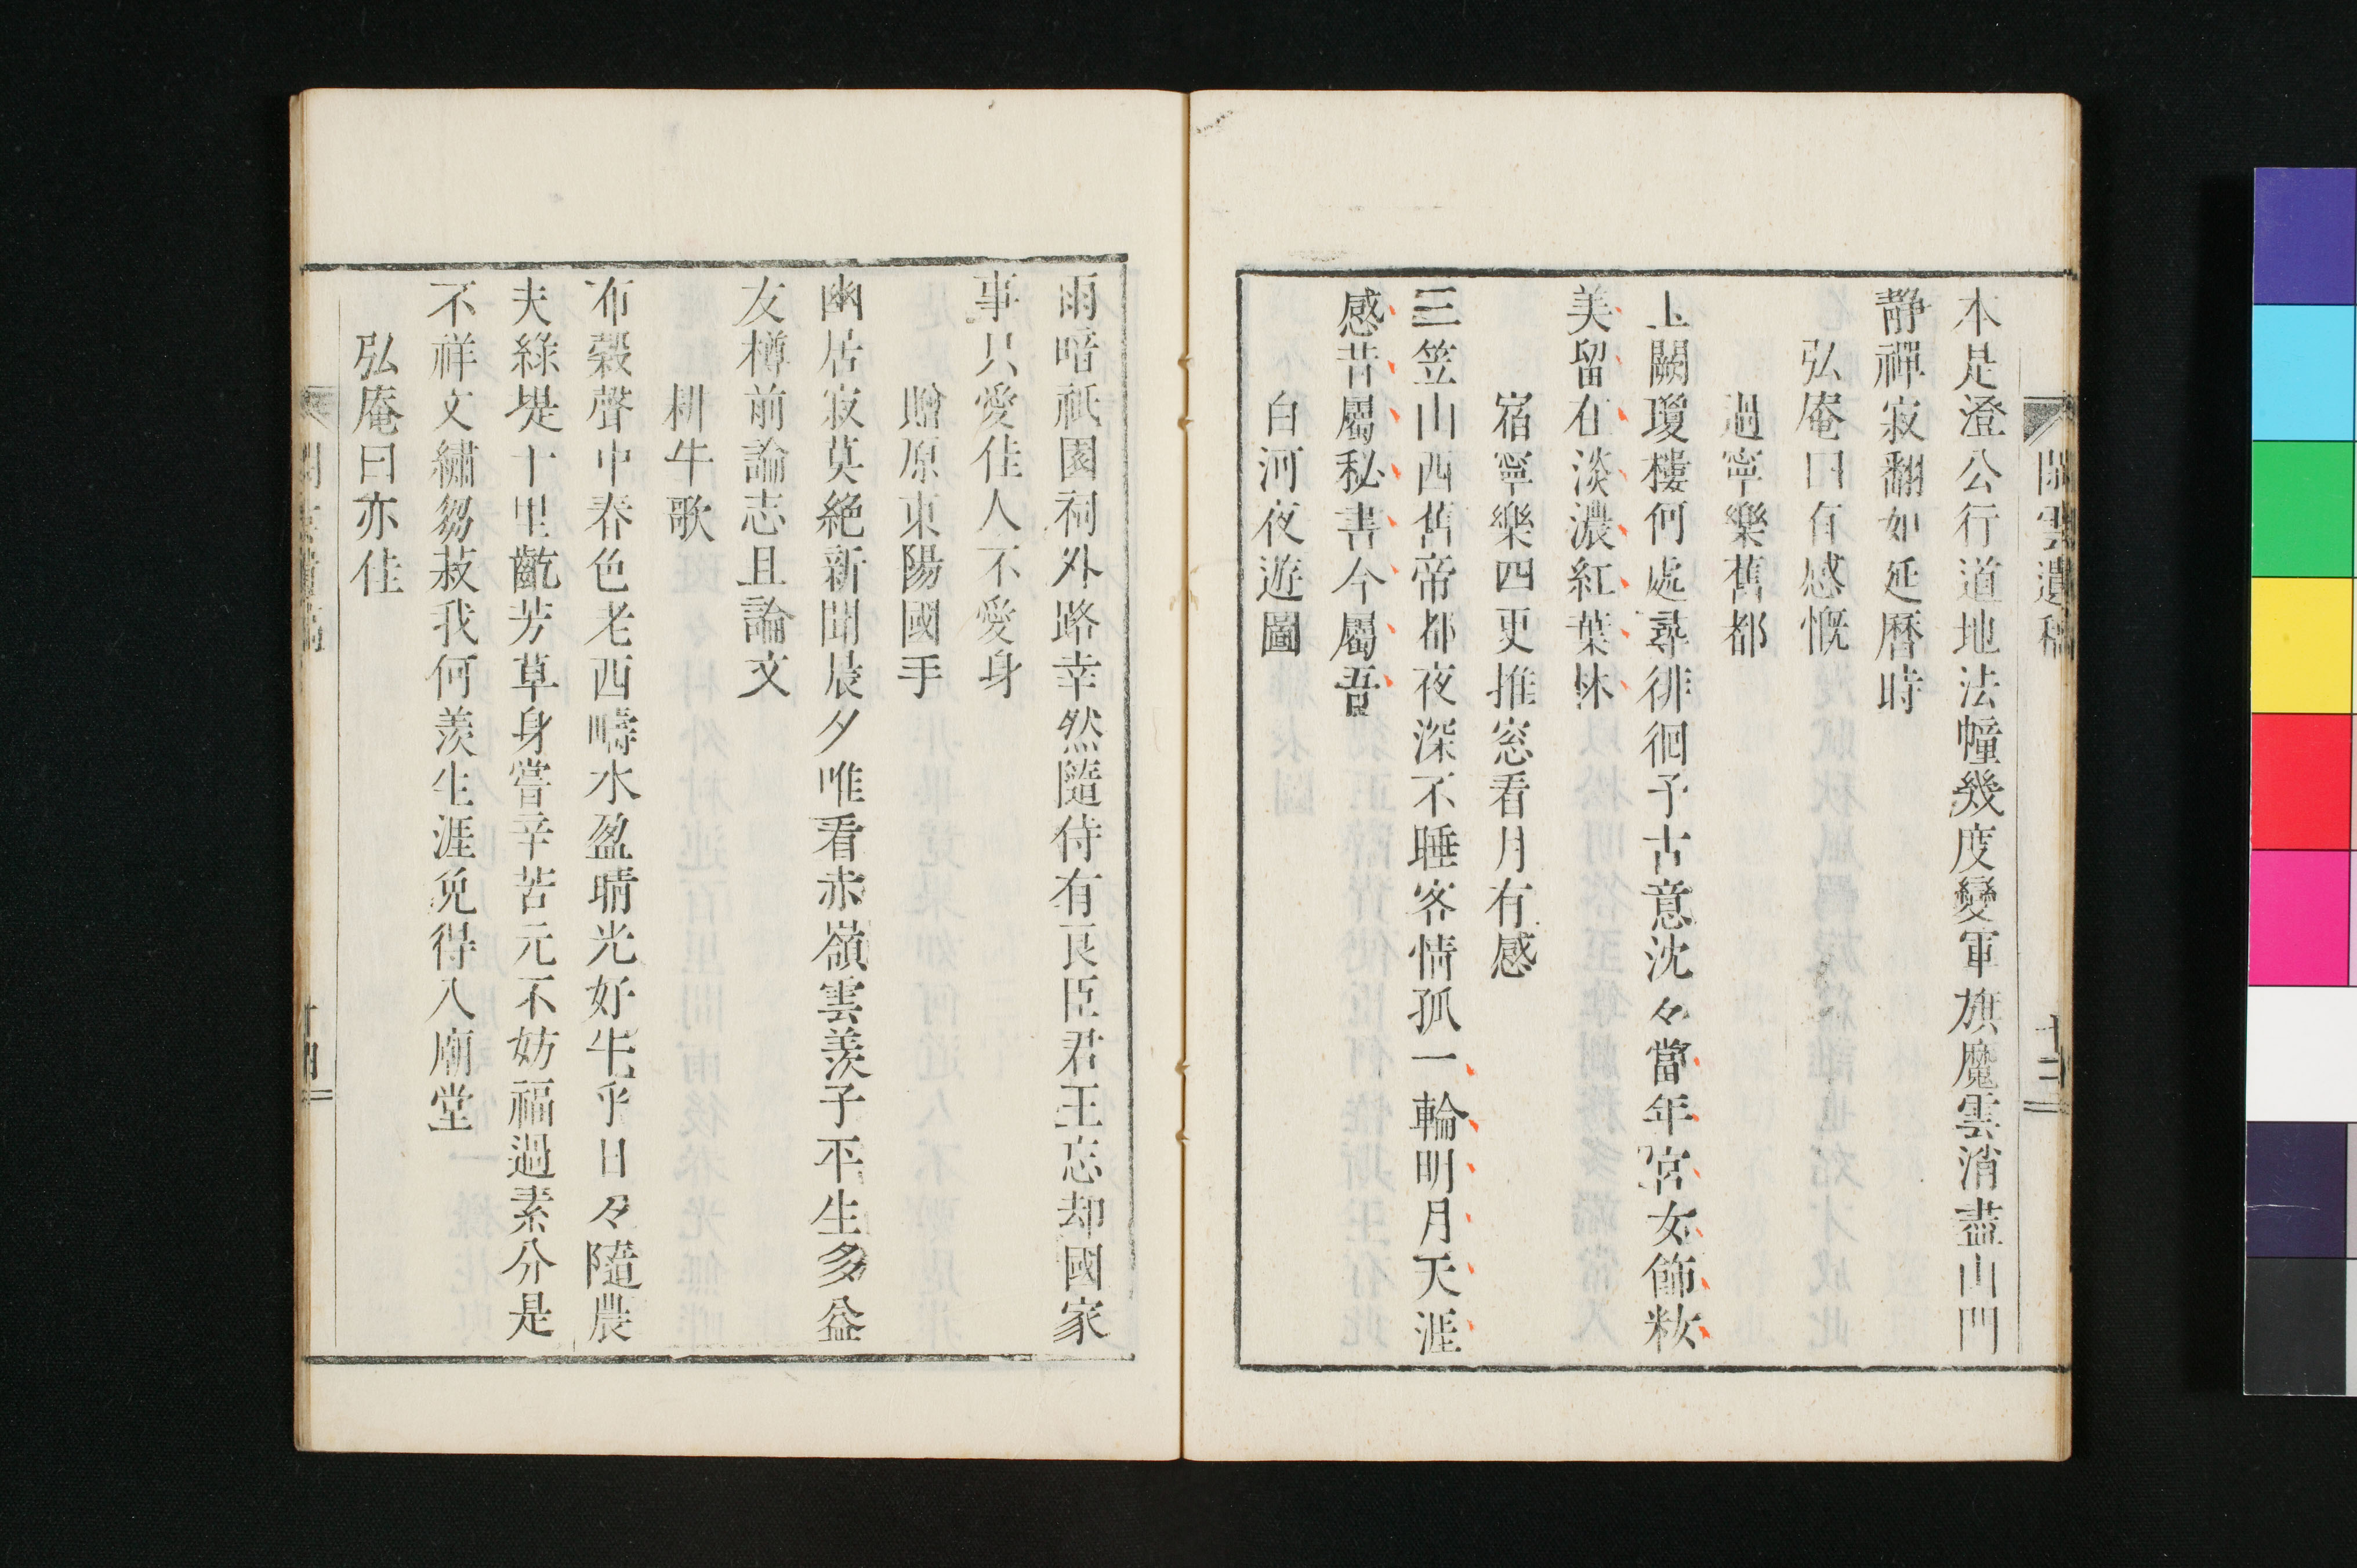 本是澄公行道地法幢幾度變軍旗魔雲消盡山門
靜禪寂翻如延曆時
弘庵曰有感慨
過寧樂舊都
上闕瓊樓何處尋徘徊予古意沈々當年宮女飾粧
美留在淡濃紅葉林
宿寧樂四更推窓看月有感
三笠山西舊帝都夜深不睡客情孤一輪明月天涯
感昔屬秘書今屬吾
白河夜遊圖
雨暗祇園祠外路幸然隨侍有良臣君王忘却國家
事只愛佳人不愛身
贈原東陽國手
幽居寂莫絶新聞晨夕唯看赤嶺雲羨子平生多益
友樽前論志且論文
耕牛歌
布穀聲中春色老西疇水盈晴光好牛乎日々隨農
夫綠堤十里齕芳草身嘗辛苦元不妨福過素分是
不祥文繡芻菽我何羨生涯免得入廟堂
弘庵曰亦佳